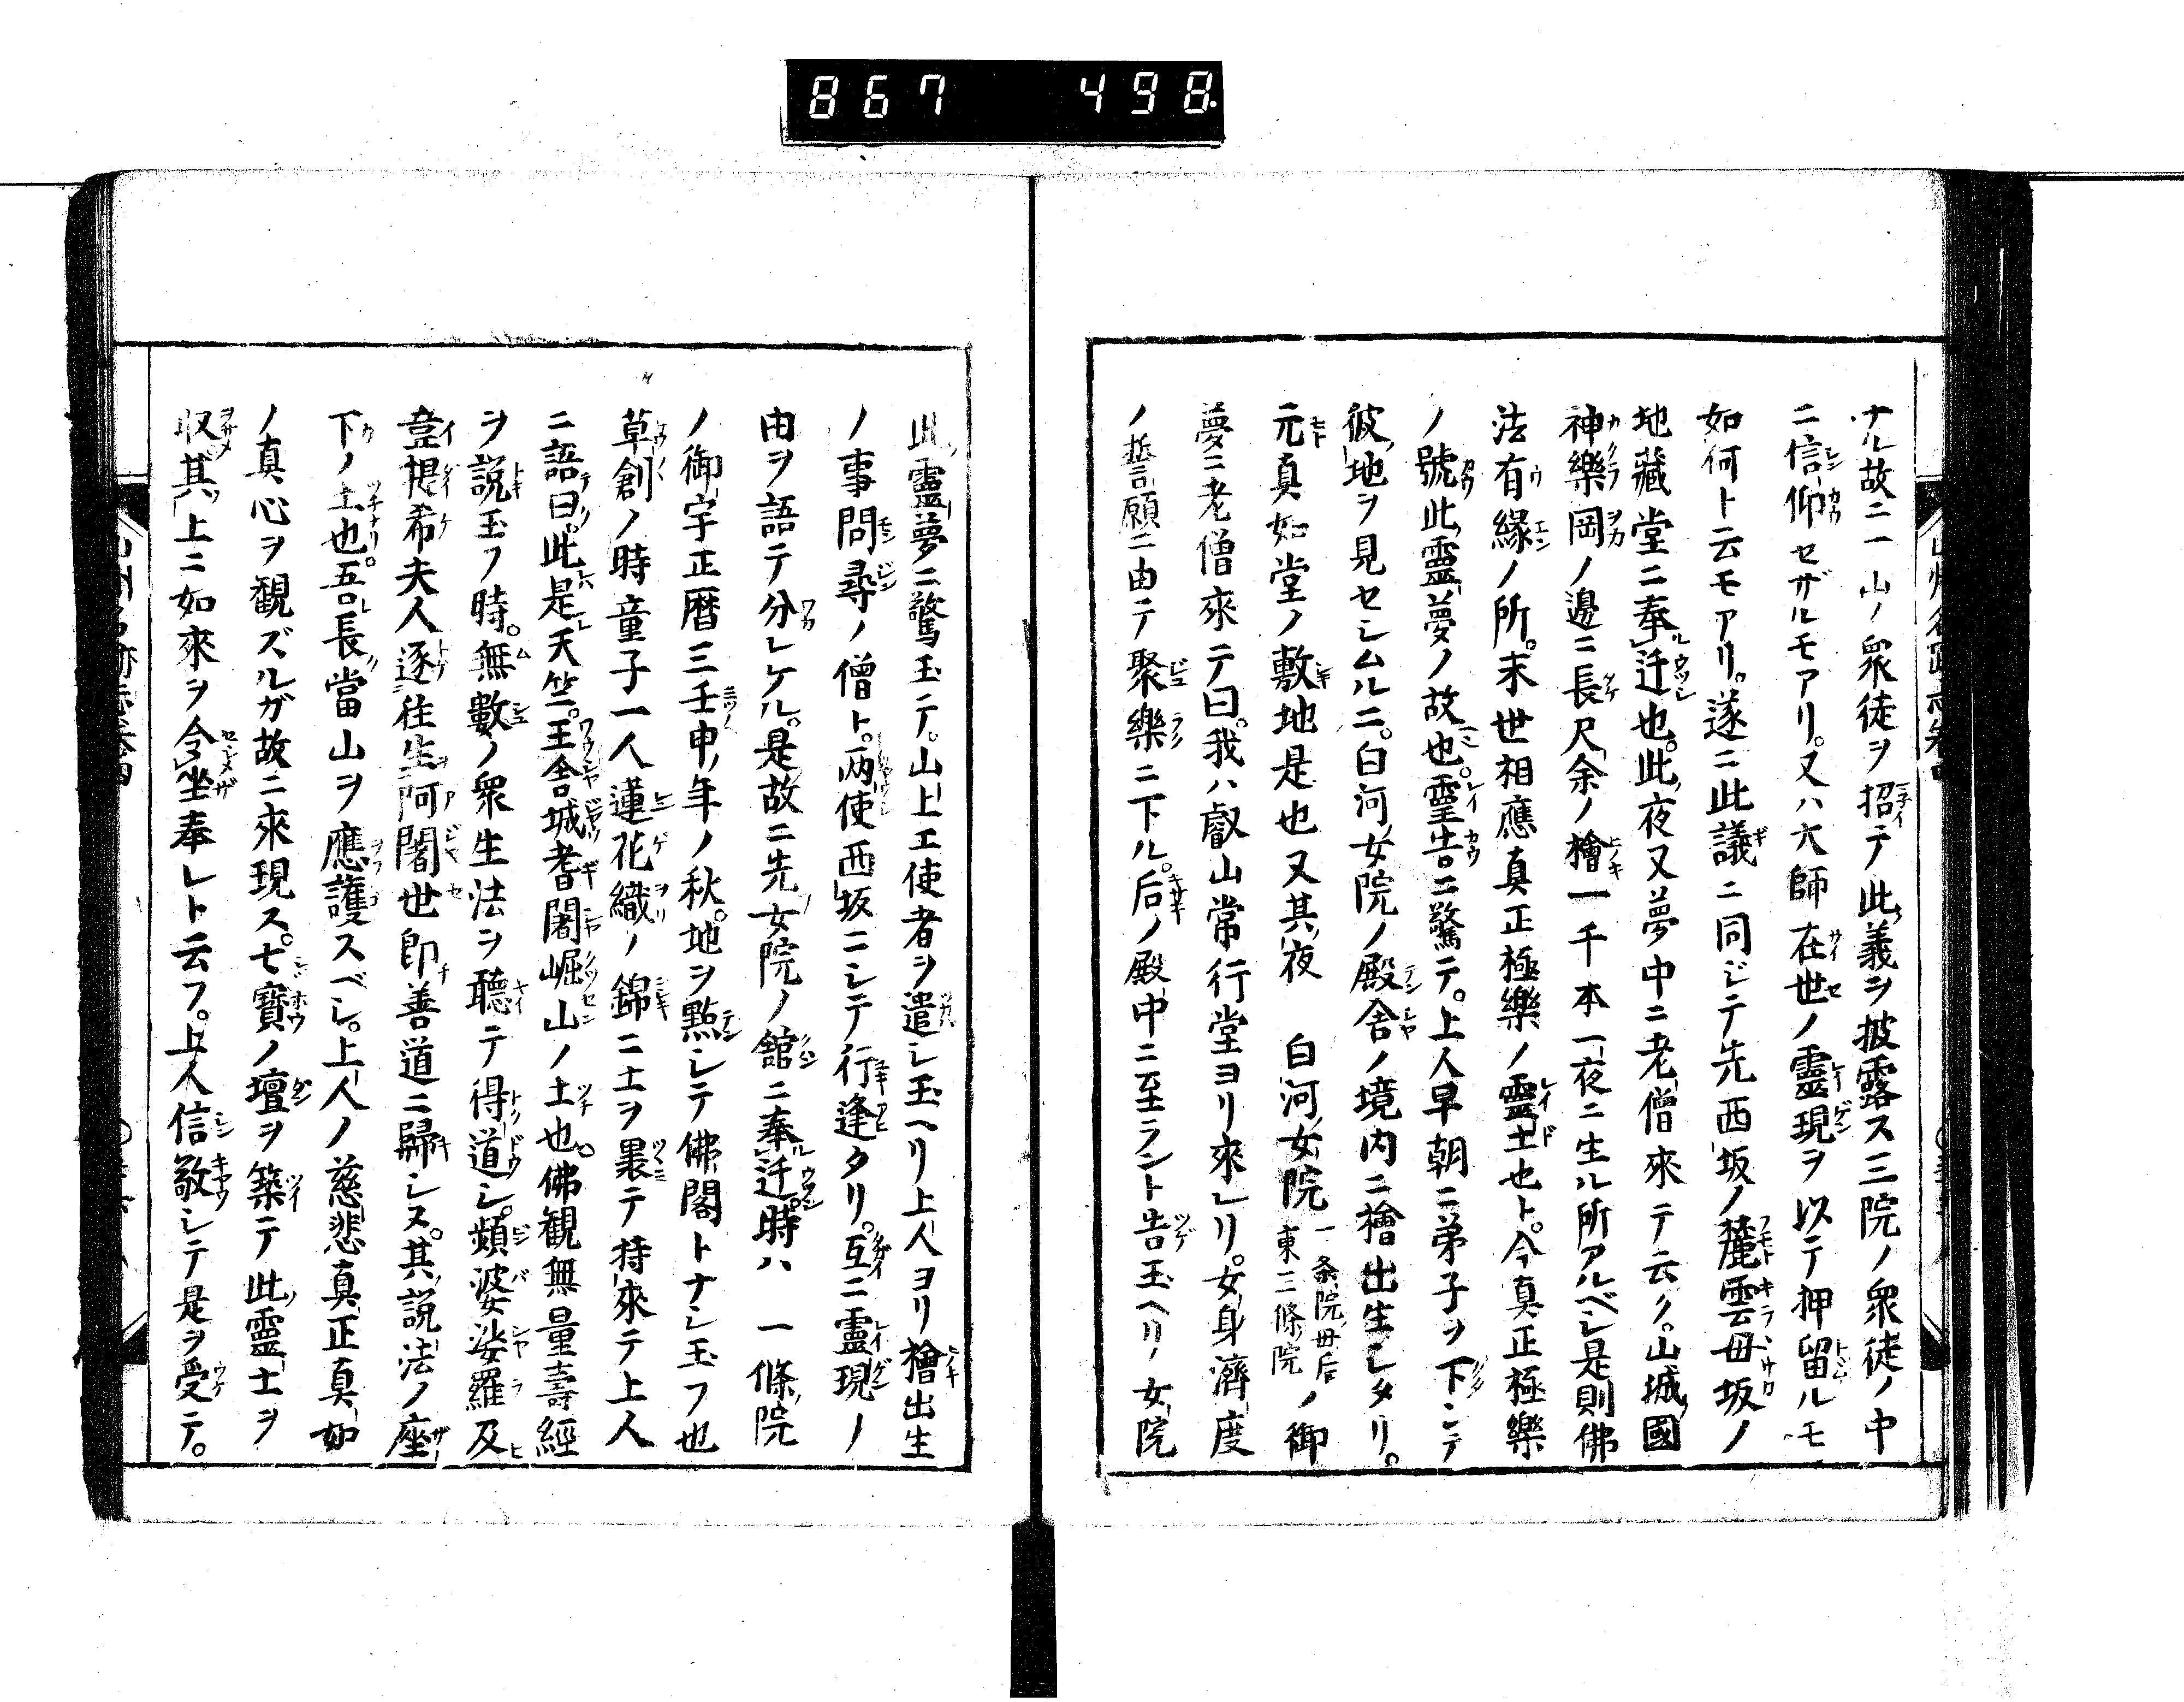 867 498
ナル故ニ一山ノ衆徒ヲ招テ此義ヲ披露ス三院ノ衆徒ノ中
ニ信仰セザルモアリ。又ハ大師在世ノ靈現ヲ以テ押留ルモ
如何ト云モアリ。遂ニ此議ニ同ジテ先西坂ノ麓雲母坂ノ
地藏堂ニ奉迁也。此夜又夢中ニ老僧來テ云ク。山城國
神樂岡ノ邊ニ長尺余ノ檜一千本一夜ニ生ル所アルベシ是則佛
法有緣ノ所。末世相應真正極樂ノ靈土也ト。今真正極樂
ノ號此靈夢ノ故也。靈告ニ驚テ。上人早朝ニ弟子ヲ下シテ
彼地ヲ見セシムルニ。白河女院ノ殿舎ノ境内ニ檜出生シタリ。
元真如堂ノ敷地是也又其夜 白河女院一条院母后東三條院ノ御
夢ニ老僧來テ曰。我ハ叡山常行堂ヨリ來レリ。女身濟度
ノ誓願ニ由テ聚樂ニ下ル。后ノ殿中ニ至ラント告玉ヘリ。女院
此靈夢ニ驚玉テ。山上エ使者ヲ遣シ玉ヘリ上人ヨリ檜出生
ノ事問尋ノ僧ト。两使西坂ニシテ行逢タリ。互ニ靈現ノ
由ヲ語テ分レケル。是故ニ先女院ノ舘ニ奉迁。時ハ 一條院
ノ御宇正暦三壬申年ノ秋。地ヲ點シテ佛閣トナシ玉フ也
草創ノ時童子一人蓮花織ノ錦ニ土ヲ裹テ持來テ上人
ニ語曰。此是天竺。王舎城耆闍崛山ノ土也。佛観無量壽經
ヲ説玉フ時。無數ノ衆生法ヲ聽テ得道シ。頻婆娑羅及
韋提希夫人逐往生阿闍世即善道ニ歸シヌ。其説法ノ座
下ノ土也。吾長當山ヲ應護スベシ。上人ノ慈悲真正真如
ノ真心ヲ観ズルガ故ニ來現ス。七寶ノ壇ヲ築テ此靈土ヲ
収其上ニ如來ヲ令坐奉レト云フ。上人信敬シテ是ヲ受テ。